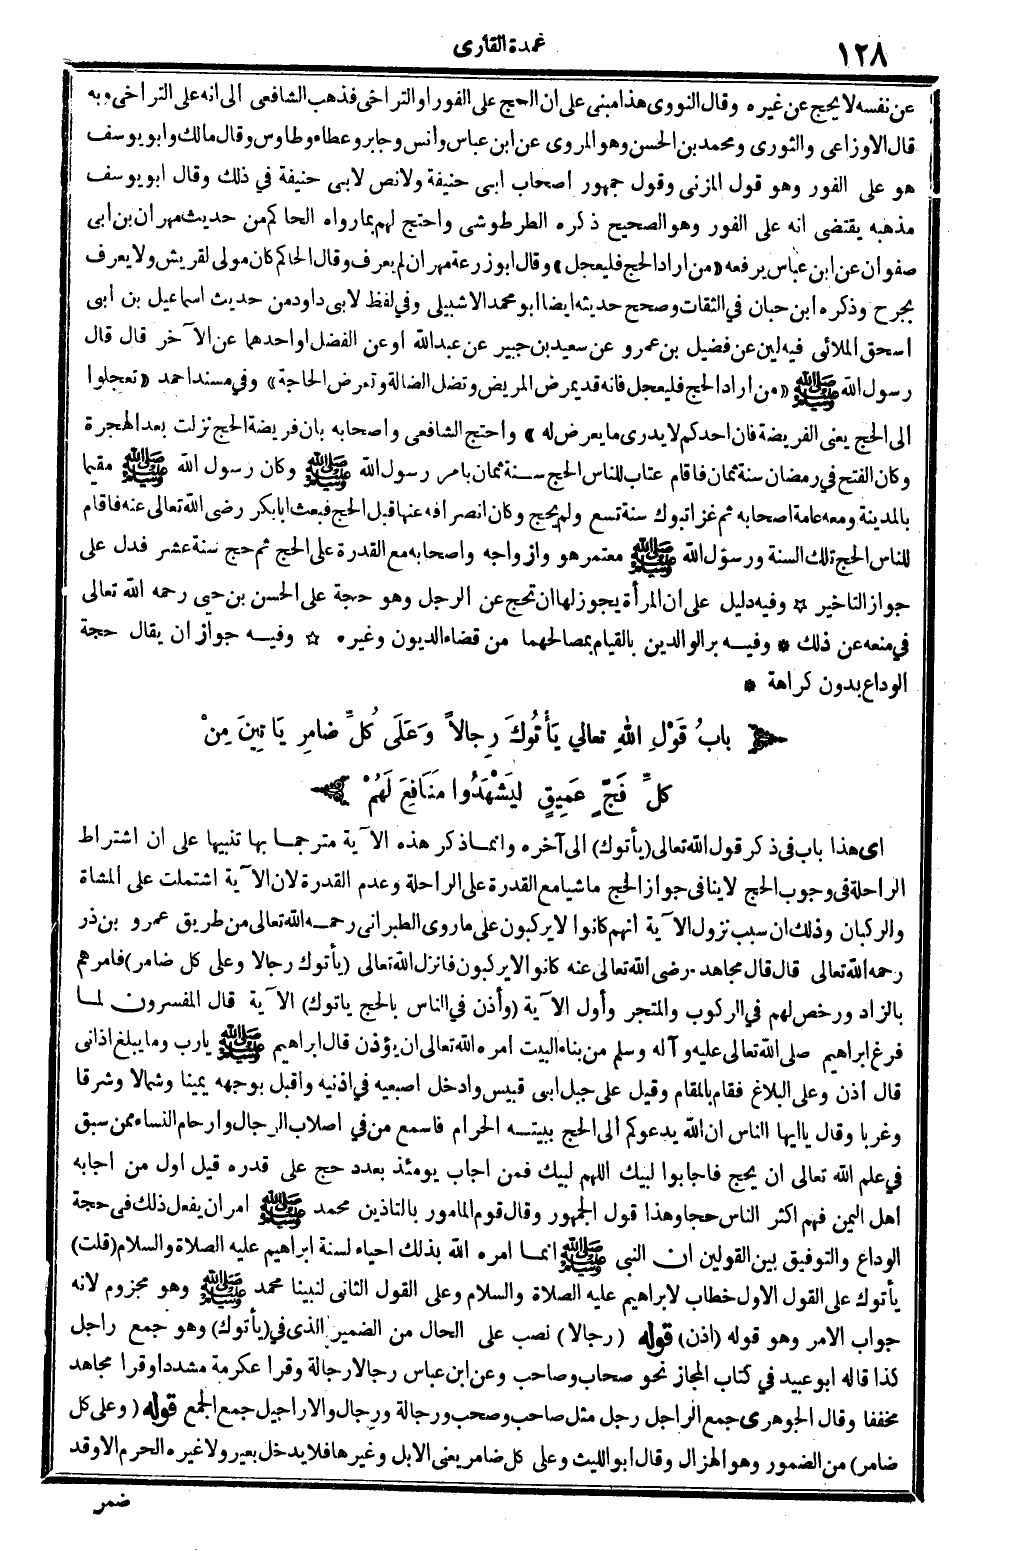 ١٢٨
عمدة القارى
عن نفسه لا يحج عن غيره وقال النووى هذا مبنى على ان الحج على الفور او التراخى فذهب الشافعى الى انه على التراخى وبه
قال الاوزاعى والثورى ومحمد بن الحسن وهو المروى عن ابن عباس وأنس وجابر وعطاء وطاوس وقال مالك وابو يوسف
هو على الفور وهو قول المزنى وقول جمهور اصحاب ابى حنيفة ولا نص لابى حنيفة في ذلك وقال ابو يوسف
مذهبه يقتضى انه على الفور وهو الصحيح ذكره الطرطوشى واحتج لهم بما رواه الحاكم من حديث مهران بن أبى
صفوان عن ابن عباس يرفعه «من اراد الحج فليعجل» وقال ابو زرعة مهران لم يعرف وقال الحاكم كان مولى لقريش ولا يعرف
بجرح وذكره ابن حبان في الثقات وصحح حديثه ايضا ابو محمد الاشبيلى وفي لفظ لابى داود من حديث اسماعيل بن ابى
اسحق الملائى فيه لين عن فضيل بن عمرو عن سعيد بن جبير عن عبدالله او عن الفضل او احدهما عن الآخر قال قال
رسول الله ﷺ «من اراد الحج فليعجل فانه قد يمرض المريض وتضل الضالة وتعرض الحاجة» وفي مسند احمد «تعجلوا
الى الحج يعنى الفريضة فان احدكم لا يدرى ما يعرض له» واحتج الشافعى واصحابه بان فريضة الحج نزلت بعد الهجرة
وكان الفتح في رمضان سنة ثمان فاقام عتاب للناس الحج سنة ثمان بامر رسول الله ﷺ وكان رسول الله ﷺ مقيما
بالمدينة ومعه عامة اصحابه ثم غزا تبوك سنة تسع ولم يحج وكان انصرافه عنها قبل الحج فبعث ابابكر رضى الله تعالى عنه فاقام
للناس الحج تلك السنة ورسول الله ﷺ معتمر هو وازواجه واصحابه مع القدرة على الحج ثم حج سنة عشر فدل على
جواز التاخير ☆ وفيه دليل على ان المرأة يجوز لها ان تحج عن الرجل وهو حجة على الحسن بن حيى رحمه الله تعالى
في منعه عن ذلك * وفيه بر الوالدين بالقيام بمصالحهما من قضاء الديون وغيره ☆ وفيه جواز ان يقال حجة
الوداع بدون كراهة *
بابُ قَوْلِ اللهِ تعالي يَأْتُوكَ رِجالاً وَعَلَى كُلِّ ضامِرٍ يَأتِينَ مِنْ
كلِّ فَجٍّ عَمِيقٍ لِيَشْهَدُوا مَنَافِعَ لَهُمْ
اى هذا باب فى ذكر قول الله تعالى (يأتوك) الى آخره وانما ذكر هذه الآية مترجما بها تنبيها على ان اشتراط
الراحلة فى وجوب الحج لا ينافى جواز الحج ماشيا مع القدرة على الراحلة وعدم القدرة لان الآية اشتملت على المشاة
والركبان وذلك ان سبب نزول الآية انهم كانوا لا يركبون على ما روى الطبرانى رحمه الله تعالى من طريق عمرو بن ذر
رحمه الله تعالى قال قال مجاهد رضى الله تعالى عنه كانوا لا يركبون فانزل الله تعالى (يأتوك رجالا وعلى كل ضامر) فامرهم
بالزاد ورخص لهم في الركوب والمتجر وأول الآية (وأذن في الناس بالحج ياتوك) الآية قال المفسرون لما
فرغ ابراهيم صلى الله تعالى عليه وآله وسلم من بناء البيت امره الله تعالى ان يؤذن قال ابراهيم ﷺ يارب وما يبلغ اذانى
قال أذن وعلى البلاغ فقام بالمقام وقيل على جبل ابى قبيس وادخل اصبعيه في اذنيه واقبل بوجهه يمينا وشمالا وشرقا
وغربا وقال يا ايها الناس ان الله يدعوكم الى الحج ببيته الحرام فاسمع من في اصلاب الرجال وارحام النساء ممن سبق
في علم الله تعالى ان يحج فاجابوا لبيك اللهم لبيك فمن اجاب يومئذ بعدد حج على قدره قيل اول من اجابه
اهل اليمن فهم اكثر الناس حجا وهذا قول الجمهور وقال قوم المامور بالتاذين محمد ﷺ امر ان يفعل ذلك فى حجة
الوداع والتوفيق بين القولين ان النبى ﷺ انما امره الله بذلك احياء لسنة ابراهيم عليه الصلاة والسلام (قلت)
يأتوك على القول الاول خطاب لابراهيم عليه الصلاة والسلام وعلى القول الثانى لنبينا محمد ﷺ وهو مجزوم لانه
جواب الامر وهو قوله (اذن) قوله (رجالا) نصب على الحال من الضمير الذى في (يأتوك) وهو جمع راجل
كذا قاله ابو عبيد في كتاب المجاز نحو صحاب وصاحب وعن ابن عباس رجالا رجالة وقرا عكرمة مشددا وقرا مجاهد
مخففا وقال الجوهرى جمع الراجل رجل مثل صاحب وصحب ورجالة ورجال والاراجيل جمع الجمع قوله (وعلى كل
ضامر) من الضمور وهو الهزال وقال ابو الليث وعلى كل ضامر يعنى الابل وغيرها فلا يدخل بعير ولا غيره الحرم الا وقد
ضمر